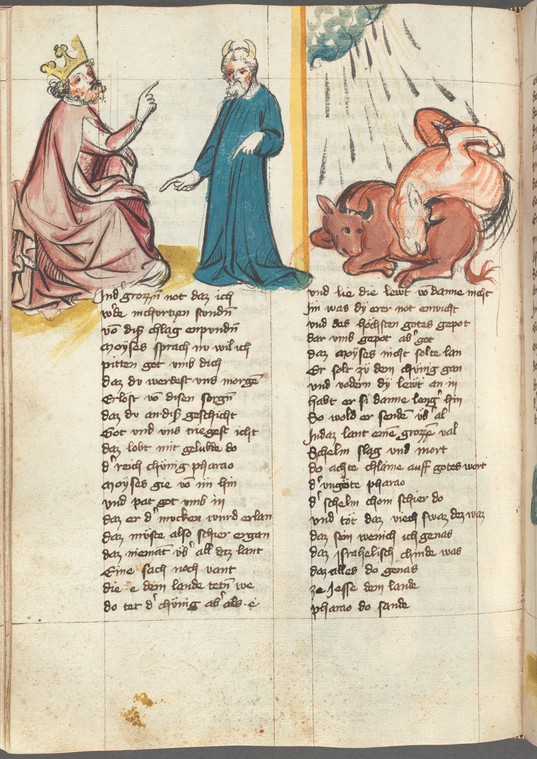 Ind grozzn not daz ich
w'de in churtzen stundn
võ diß chlag enpundn
Moyses sprach nu wil ich
pitten got vmb dich
daz du werdest vns morgē
Erlost võ disen sorgn
daz du an diß geschicht
Got vnd vns triegest icht
daz lobt mit gelubde do
d' reich chunig pharao
Moyses gie võ im hin
vnd pat got vmb in
daz er d' mucken wurd erlan
daz muste also schier ergan
daz niemāt vb' all dez lant
Eine sach noch vant
die e dem lande tetn we
do tet d' chunig ab' als e
vnd lie die lewt võ danne nicht
Im was dy erer not enwicht
vnd des hochsten gotes gepot
dar vmb gepot ab' got
daz Moyses nicht solte lan
Er solt zu dem chunig gan
vnd vodern dy lewt an in
habt er si danne leng' hin
So wold er senden vb' al
In daz lant eine grozze val
Schelm slag vnd mort
do achte chlaine auff gotes wort
d' vngute pharao
d' schelm chom schier do
vnd tot daz viech swaz dez waz
daz sein wenich ich genas
daz israhelisch chinde was
daz alles do genas
ze Jesse dem lande
pharao do sande